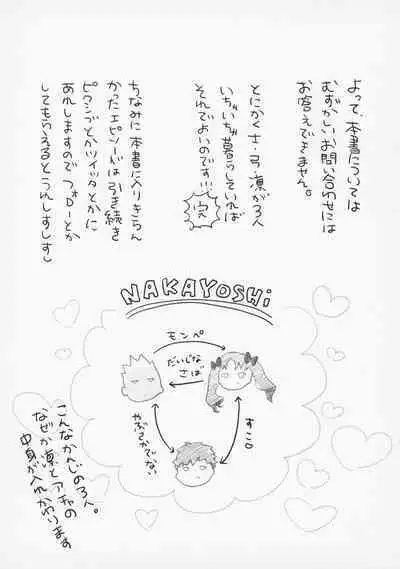 よって、本書については
むずかしいお問い合わせには
お答えできません。
とにかく士・弓・凛が3人
いちゃいちゃ暮らしていれば
それでよいのです!!!
完
ちなみに本書に入りきらん
かったエピソードは引き続き
ピクシブとかツイッタとかに
あれしますので フォローとか
してもらえるとうれしすしすし
NAKAYOSHi
モンペ
だいじな
さば
すこ
やぶさかでない
こんなかんじの3人。
なぜか凛とアチャの
中身が入れかわります